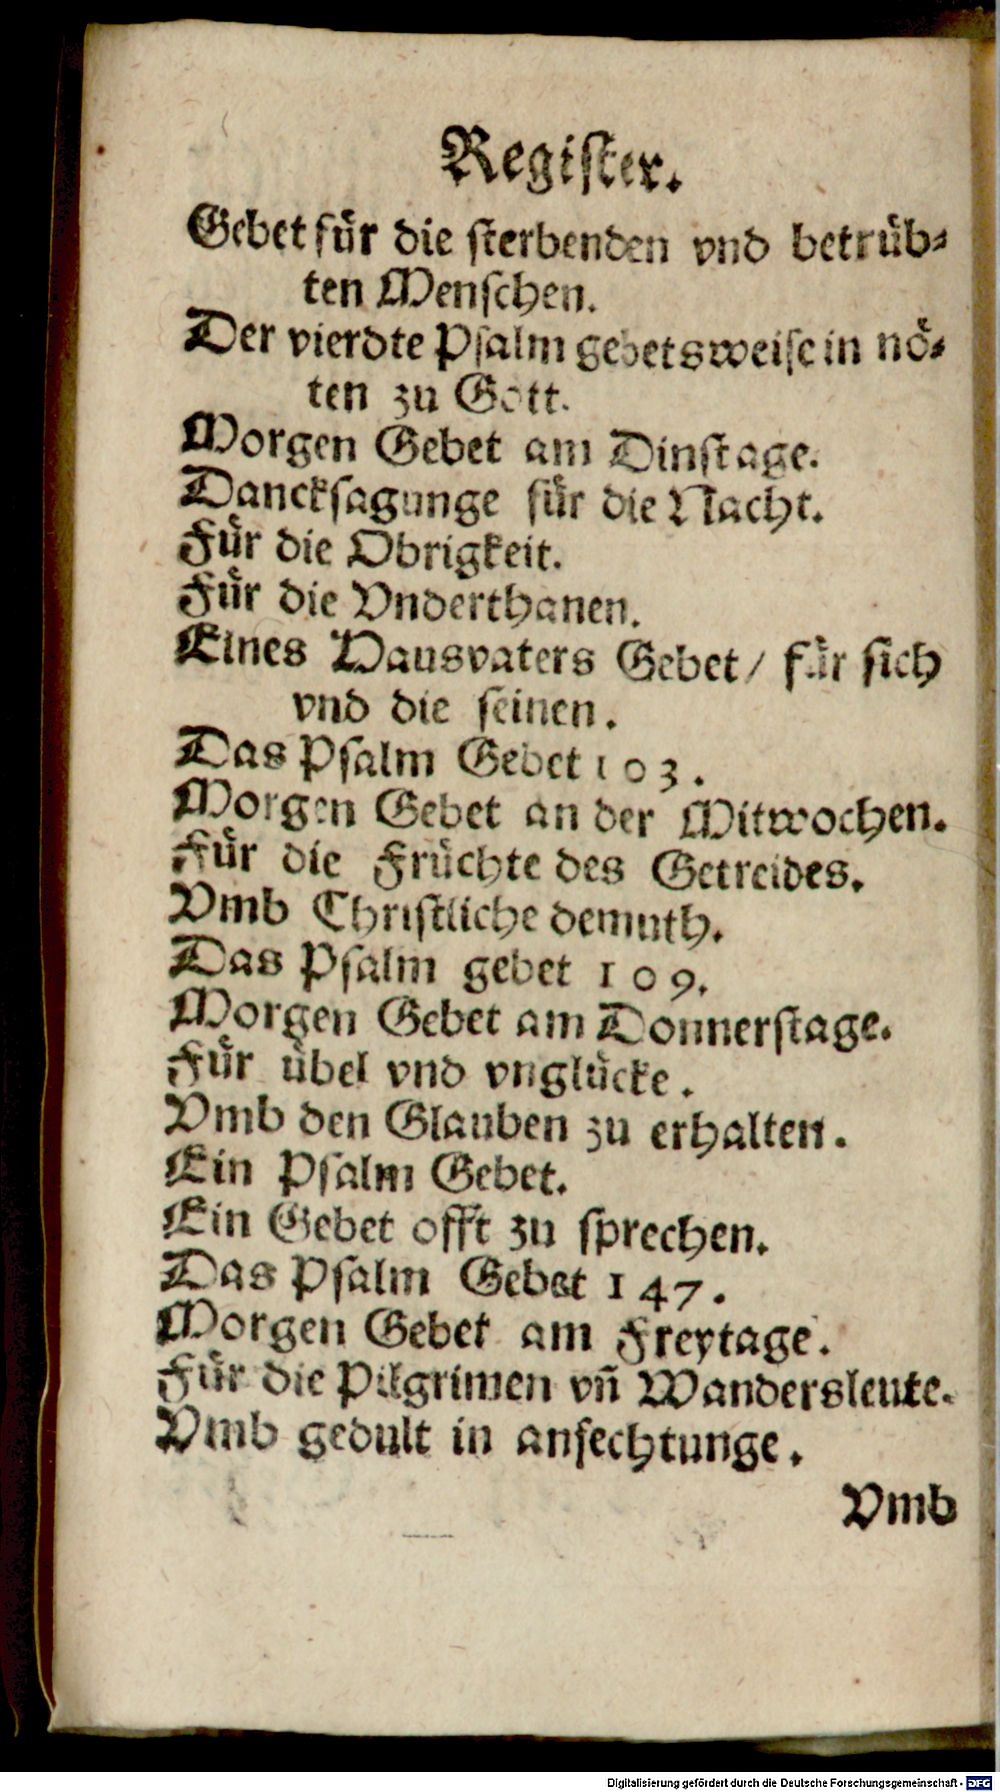 Register.
Gebet für die sterbenden vnd betrüb⸗
ten Menschen.
Der vierdte Psalm gebetsweise in nö⸗
ten zu Gott.
Morgen Gebet am Dinstage.
Dancksagunge für die Nacht.
Für die Obrigkeit.
Für die Vnderthanen.
Eines Hausvaters Gebet / für sich
vnd die seinen.
Das Psalm Gebet 103.
Morgen Gebet an der Mitwochen.
Für die Früchte des Getreides.
Vmb Christliche demuth.
Das Psalm gebet 109.
Morgen Gebet am Donnerstage.
Für übel vnd vnglücke.
Vmb den Glauben zu erhalten.
Ein Psalm Gebet.
Ein Gebet offt zu sprechen.
Das Psalm Gebet 147.
Morgen Gebet am Freytage.
Für die Pilgrimen vñ Wandersleute.
Vmb gedult in anfechtunge.
Vmb
Digitalisierung gefördert durch die Deutsche Forschungsgemeinschaft - DFG